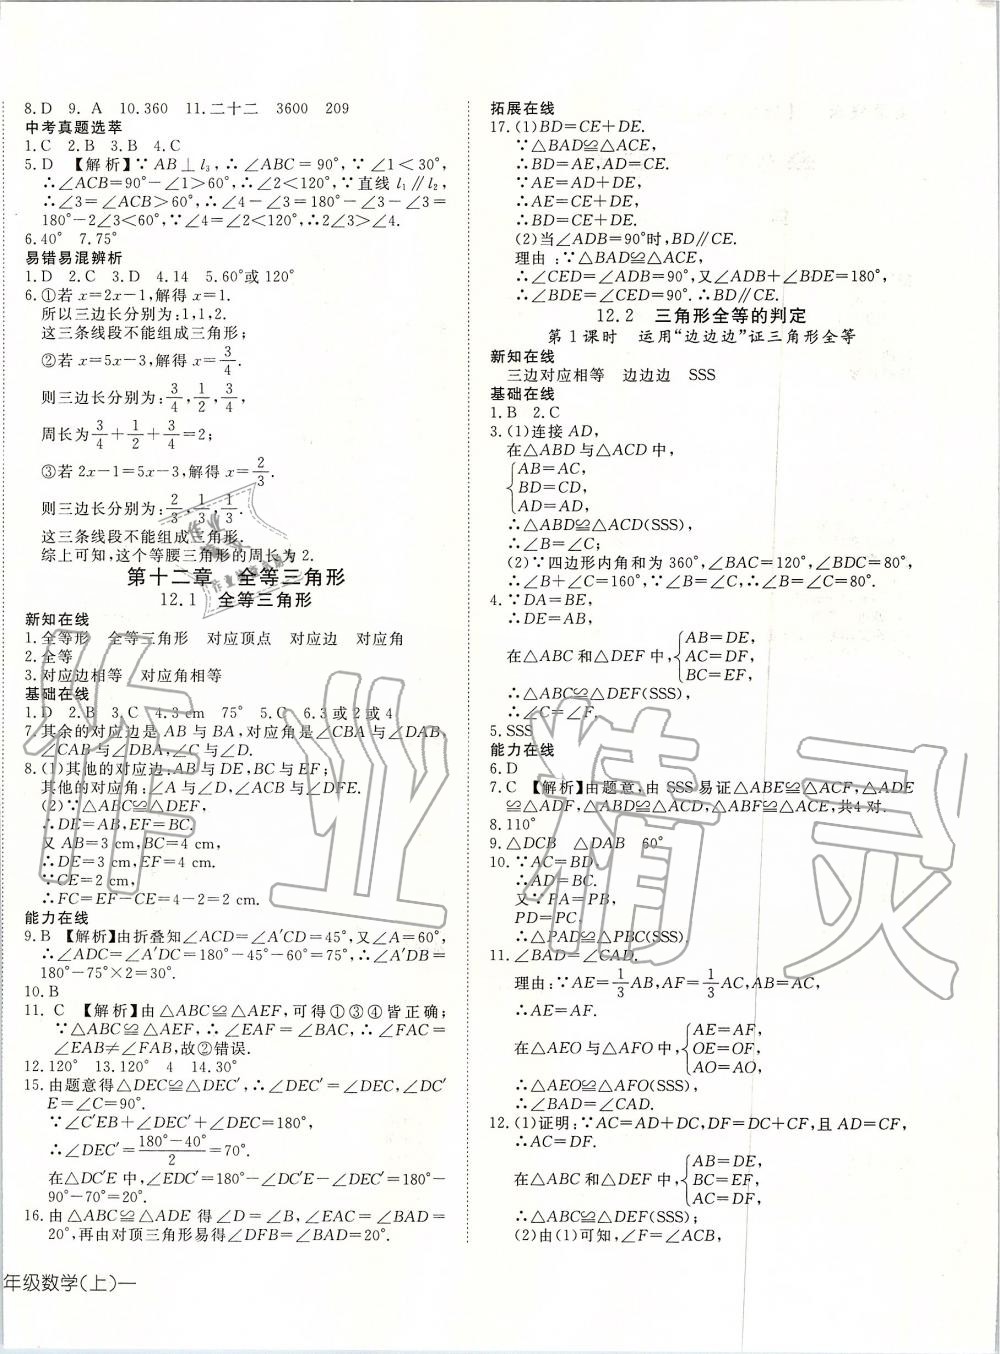 8.D 9. A 10.360 11.二十二 3600 209
中考真题选萃
1.C 2.B 3.B 4.C
5.D 【解析】∵AB⊥l₃,∴∠ABC=90°,∵∠1<30°,
∴∠ACB=90°-∠1>60°,∴∠2<120°,∵直线 l₁∥l₂,
∴∠3=∠ACB>60°,∴∠4-∠3=180°-∠3-∠3=
180°-2∠3<60°,∵∠4=∠2<120°,∴2∠3>∠4.
6.40° 7.75°
易错易混辨析
1.D 2.C 3.D 4.14 5.60°或120°
6.①若 x=2x-1,解得 x=1.
所以三边长分别为:1,1,2.
这三条线段不能组成三角形;
②若 x=5x-3,解得 x=3/4.
则三边长分别为:3/4,1/2,3/4,
周长为3/4+1/2+3/4=2;
③若 2x-1=5x-3,解得 x=2/3.
则三边长分别为:2/3,1/3,1/3.
这三条线段不能组成三角形.
综上可知,这个等腰三角形的周长为2.
第十二章 全等三角形
12.1 全等三角形
新知在线
1.全等形 全等三角形 对应顶点 对应边 对应角
2.全等
3.对应边相等 对应角相等
基础在线
1.D 2.B 3.C 4.3 cm 75° 5.C 6.3或2或4
7.其余的对应边是 AB 与 BA,对应角是∠CBA 与∠DAB,
∠CAB 与∠DBA,∠C 与∠D.
8.(1)其他的对应边:AB 与 DE,BC 与 EF;
其他的对应角:∠A 与∠D,∠ACB 与∠DFE.
(2)∵△ABC≌△DEF,
∴DE=AB,EF=BC.
又 AB=3 cm,BC=4 cm,
∴DE=3 cm,EF=4 cm.
∵CE=2 cm,
∴FC=EF-CE=4-2=2 cm.
能力在线
9.B 【解析】由折叠知∠ACD=∠A′CD=45°,又∠A=60°,
∴∠ADC=∠A′DC=180°-45°-60°=75°,∴∠A′DB=
180°-75°×2=30°.
10.B
11. C 【解析】由△ABC≌△AEF,可得①③④皆正确;
∵△ABC≌△AEF,∴∠EAF=∠BAC,∴∠FAC=
∠EAB≠∠FAB,故②错误.
12.120° 13.120° 4 14.30°
15.由题意得△DEC≌△DEC′,∴∠DEC′=∠DEC,∠DC′
E=∠C=90°.
∵∠C′EB+∠DEC′+∠DEC=180°,
∴∠DEC′=(180°-40°)/2=70°.
在△DC′E 中,∠EDC′=180°-∠DC′E-∠DEC′=180°-
90°-70°=20°.
16.由△ABC≌△ADE 得∠D=∠B,∠EAC=∠BAD=
20°,再由对顶三角形易得∠DFB=∠BAD=20°.
年级数学(上)—
拓展在线
17.(1)BD=CE+DE.
∵△BAD≌△ACE,
∴BD=AE,AD=CE.
∵AE=AD+DE,
∴AE=CE+DE,
∴BD=CE+DE.
(2)当∠ADB=90°时,BD∥CE.
理由:∵△BAD≌△ACE,
∴∠CED=∠ADB=90°,又∠ADB+∠BDE=180°,
∴∠BDE=∠CED=90°.∴BD∥CE.
12.2 三角形全等的判定
第1课时 运用“边边边”证三角形全等
新知在线
三边对应相等 边边边 SSS
基础在线
1.B 2.C
3.(1)连接 AD,
在△ABD 与△ACD 中,
AB=AC,
BD=CD,
AD=AD,
∴△ABD≌△ACD(SSS),
∴∠B=∠C;
(2)∵四边形内角和为360°,∠BAC=120°,∠BDC=80°,
∴∠B+∠C=160°,∵∠B=∠C,∴∠B=80°.
4.∵DA=BE,
∴DE=AB,
在△ABC 和△DEF 中,
AB=DE,
AC=DF,
BC=EF,
∴△ABC≌△DEF(SSS),
∴∠C=∠F.
5.SSS
能力在线
6.D
7.C 【解析】由题意,由 SSS 易证△ABE≌△ACF,△ADE
≌△ADF,△ABD≌△ACD,△ABF≌△ACE,共4对.
8.110°
9.△DCB △DAB 60°
10.∵AC=BD,
∴AD=BC.
又∵PA=PB,
PD=PC,
∴△PAD≌△PBC(SSS).
11.∠BAD=∠CAD.
理由:∵AE=1/3AB,AF=1/3AC,AB=AC,
∴AE=AF.
在△AEO 与△AFO 中,
AE=AF,
OE=OF,
AO=AO,
∴△AEO≌△AFO(SSS).
∴∠BAD=∠CAD.
12.(1)证明:∵AC=AD+DC,DF=DC+CF,且 AD=CF,
∴AC=DF.
在△ABC 和△DEF 中,
AB=DE,
BC=EF,
AC=DF,
∴△ABC≌△DEF(SSS);
(2)由(1)可知,∠F=∠ACB,
作业精灵